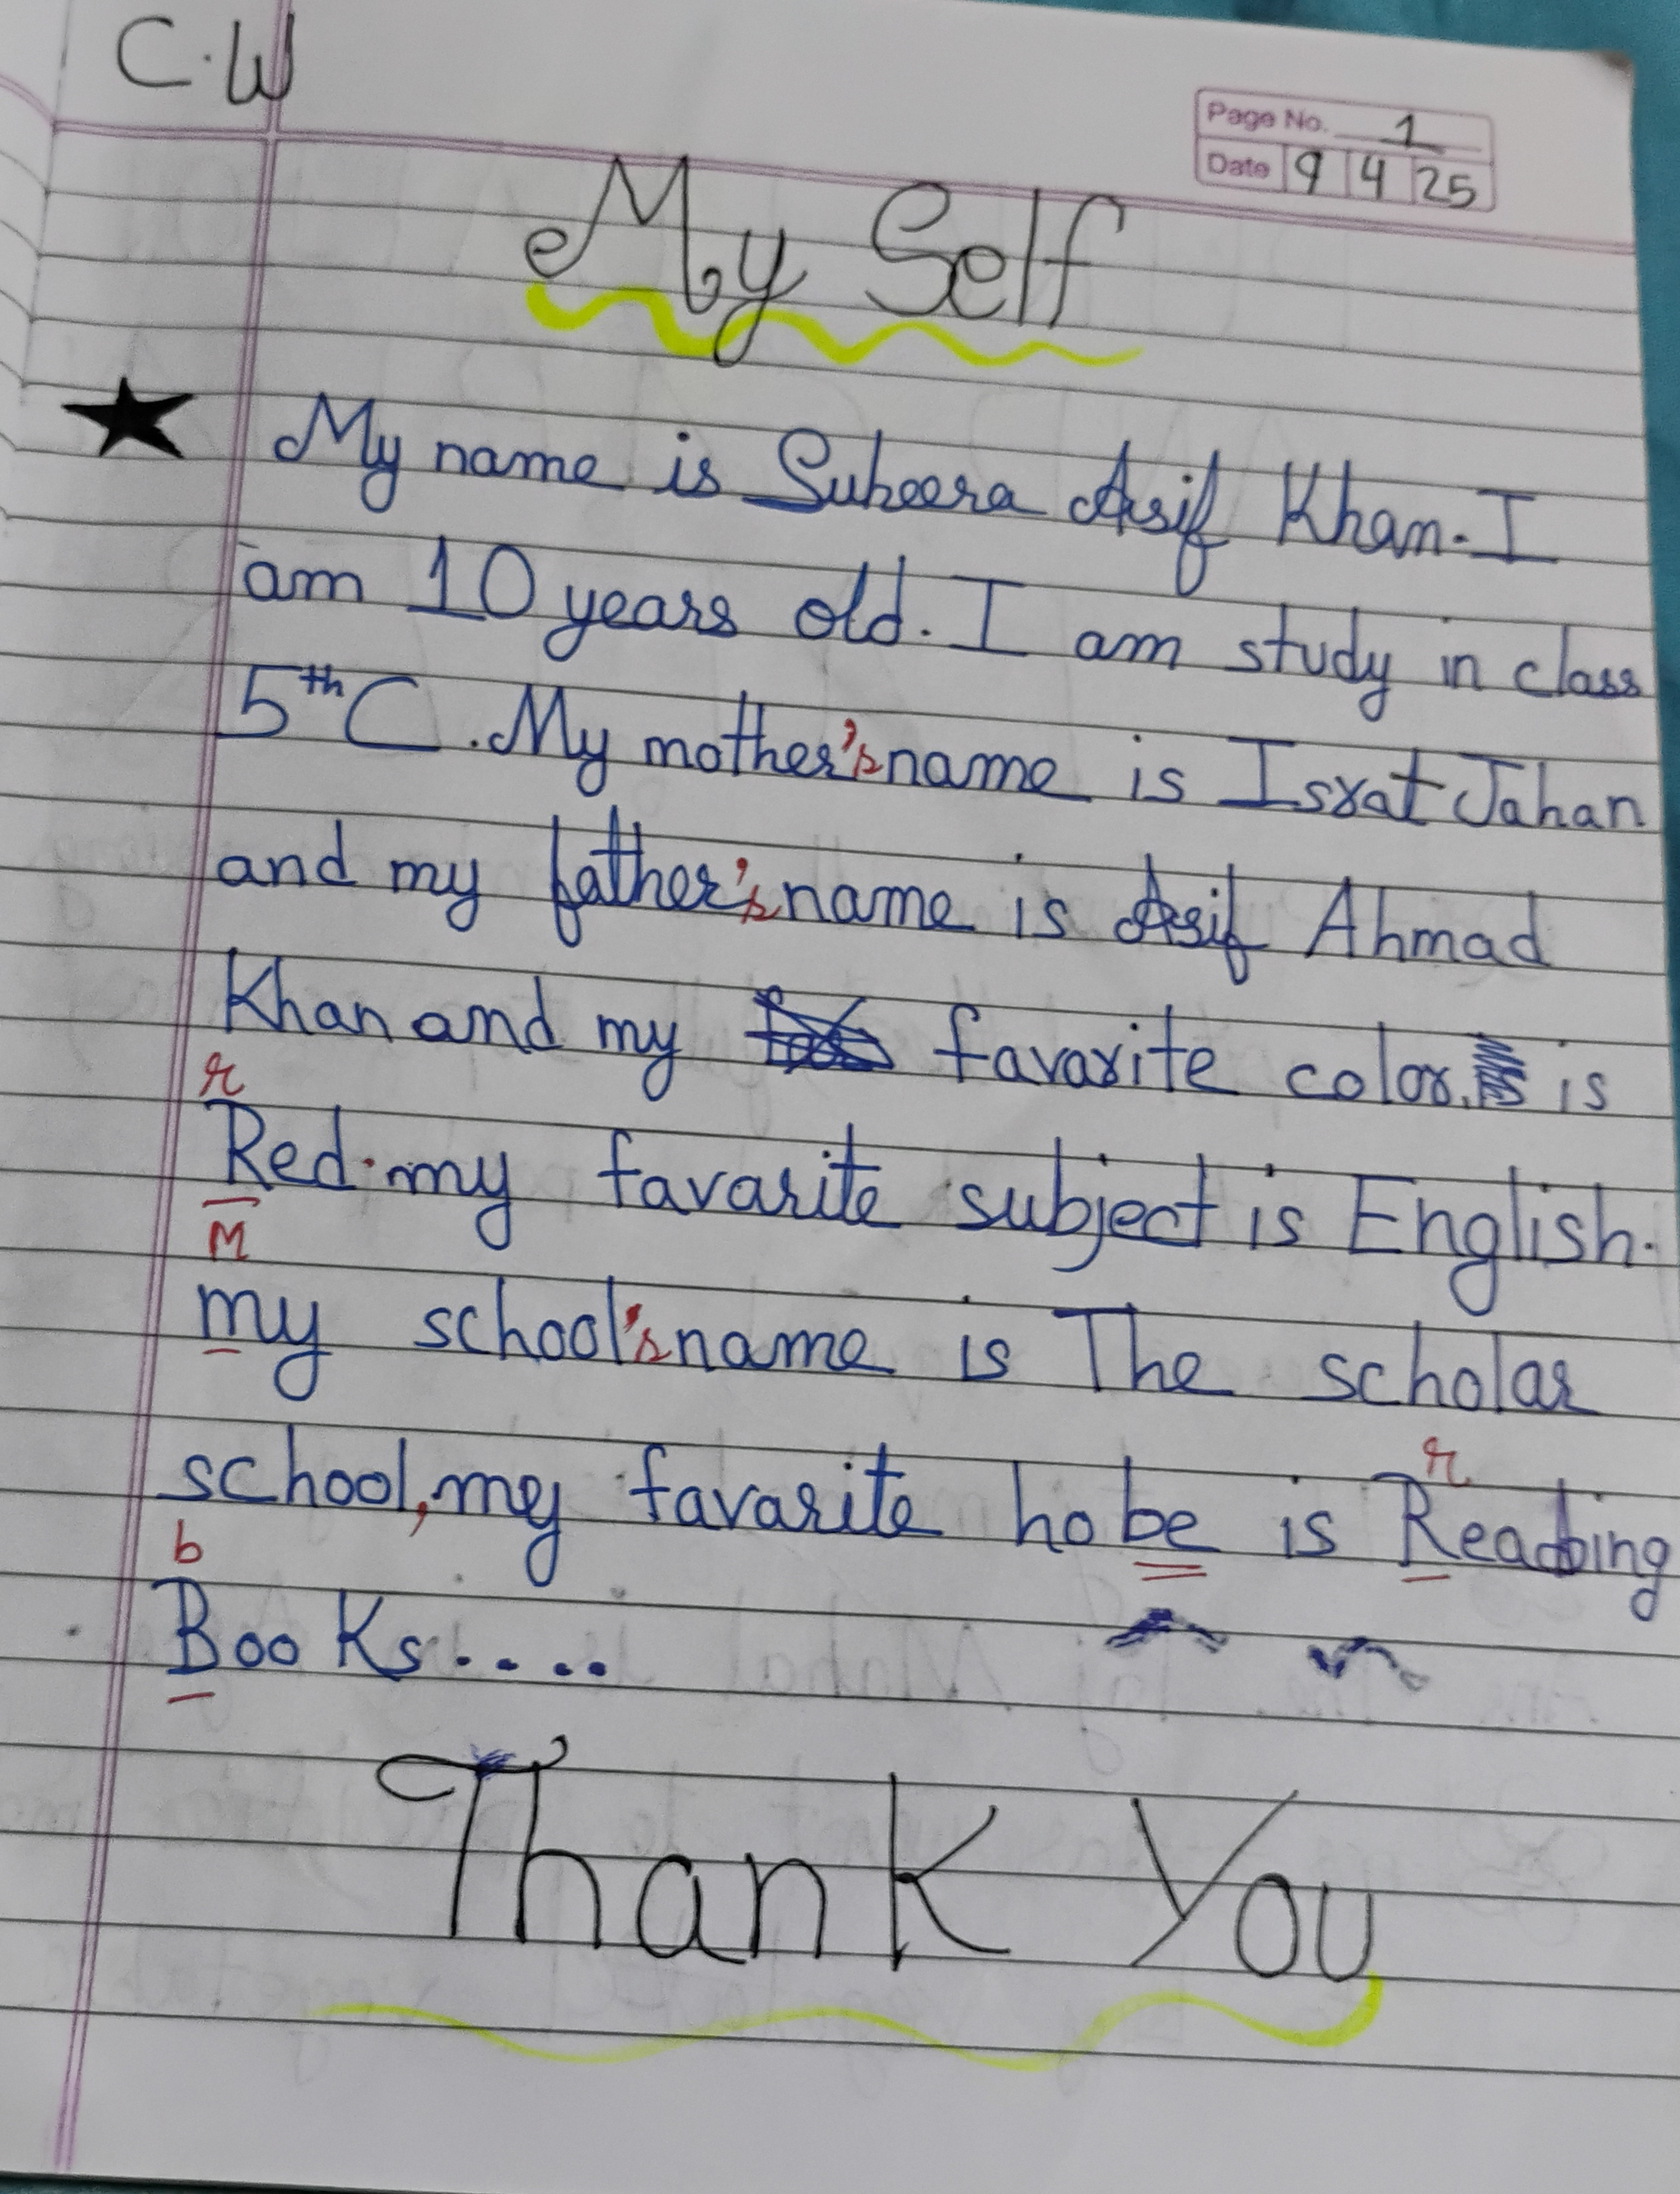 C.W
Page No. 1
Date 9 4 25
My Self
★ My name is Suheera Asif Khan. I
am 10 years old. I am study in class
5th C. My mother's name is Israt Jahan
and my father's name is Asif Ahmad
Khan and my favarite color. is
r
Red. my favarite subject is English.
M
my school's name is The scholar
r
school, my favarite hobe is Reading
b
Books....
Thank You